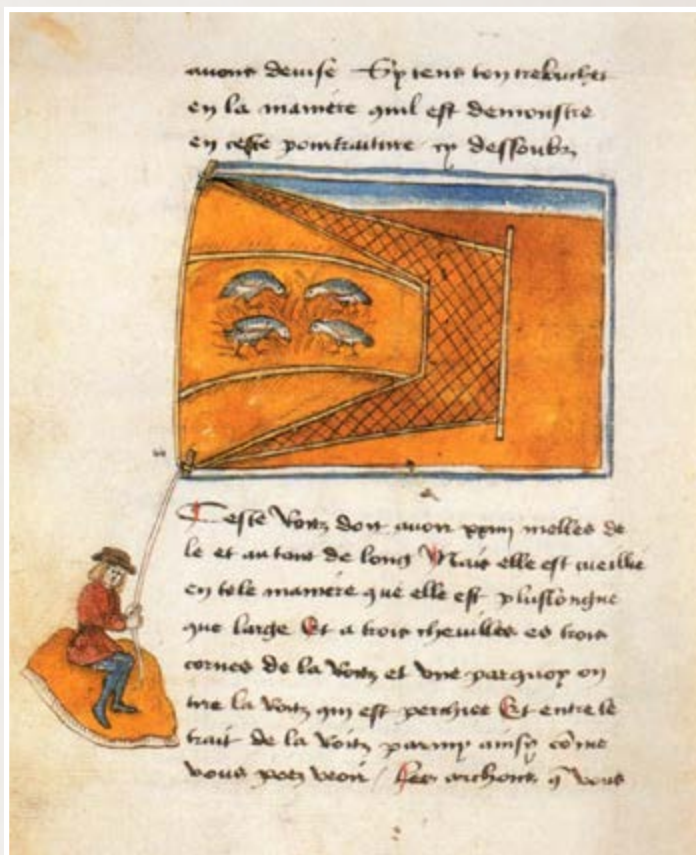 auons deuise Sy tens ton trebuchet
en la maniere quil est demonstre
en ceste pourtraiture cy dessoubz
Ceste doit auoir xxiiij melles de
le et autant de long Mais elle est cueillie
en tele maniere que elle est plus longue
que large Et a trois cheuilles es trois
cornes de la et vne parquoy on
tire la qui est perchiee Et entre le
trait de la parmy ainsy come
vous poez veoir Les archons q̄ vous